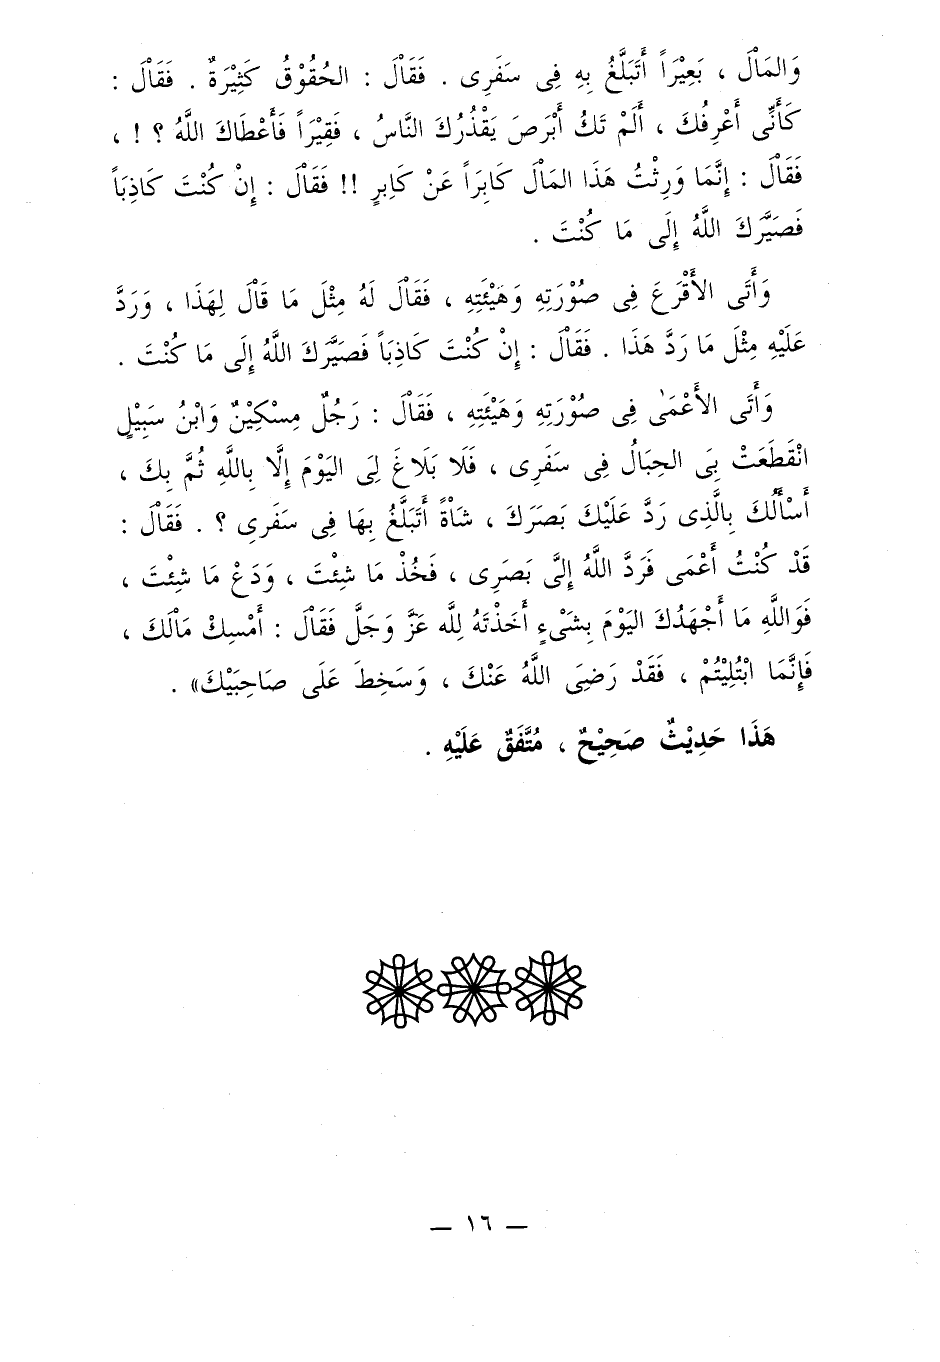 وَالمَاْلَ ، بَعِيْرَاً أَتَبَلَّغُ بِهِ فِى سَفَرِى . فَقَاْلَ : الحُقُوْقُ كَثِيْرَةٌ . فَقَاْلَ :
كَأَنِّى أَعْرِفُكَ ، أَلَمْ تَكُ أَبْرَصَ يَقْذُرُكَ النَّاسُ ، فَقِيْرَاً فَأَعْطَاكَ اللَّهُ ؟ ! ،
فَقَاْلَ : إِنَّمَا وَرِثْتُ هَذَا المَاْلَ كَابِرَاً عَنْ كَابِرٍ !! فَقَاْلَ : إِنْ كُنْتَ كَاذِبَاً
فَصَيَّرَكَ اللَّهُ إِلَى مَا كُنْتَ .
وَأَتَى الأَقْرَعَ فِى صُوْرَتِهِ وَهَيْئَتِهِ ، فَقَاْلَ لَهُ مِثْلَ مَا قَاْلَ لِهَذَا ، وَرَدَّ
عَلَيْهِ مِثْلَ مَا رَدَّ هَذَا . فَقَاْلَ : إِنْ كُنْتَ كَاذِبَاً فَصَيَّرَكَ اللَّهُ إِلَى مَا كُنْتَ .
وَأَتَى الأَعْمَىٰ فِى صُوْرَتِهِ وَهَيْئَتِهِ ، فَقَاْلَ : رَجُلٌ مِسْكِيْنٌ وَابْنُ سَبِيْلٍ
انْقَطَعَتْ بِىَ الحِبَالُ فِى سَفَرِى ، فَلَا بَلَاغَ لِىَ اليَوْمَ إِلَّا بِاللَّهِ ثُمَّ بِكَ ،
أَسْأَلُكَ بِالَّذِى رَدَّ عَلَيْكَ بَصَرَكَ ، شَاْةً أَتَبَلَّغُ بِهَا فِى سَفَرِى ؟ . فَقَاْلَ :
قَدْ كُنْتُ أَعْمَى فَرَدَّ اللَّهُ إِلَىَّ بَصَرِى ، فَخُذْ مَا شِئْتَ ، وَدَعْ مَا شِئْتَ ،
فَوَاللَّهِ مَا أَجْهَدُكَ اليَوْمَ بِشَىْءٍ أَخَذْتَهُ لِلَّه عَزَّ وَجَلَّ فَقَاْلَ : أَمْسِكْ مَاْلَكَ ،
فَإِنَّمَا ابْتُلِيْتُمْ ، فَقَدْ رَضِىَ اللَّهُ عَنْكَ ، وَسَخِطَ عَلَى صَاحِبَيْكَ» .
هَذَا حَدِيْثٌ صَحِيْحٌ ، مُتَّفَقٌ عَلَيْهِ .
— ١٦ —